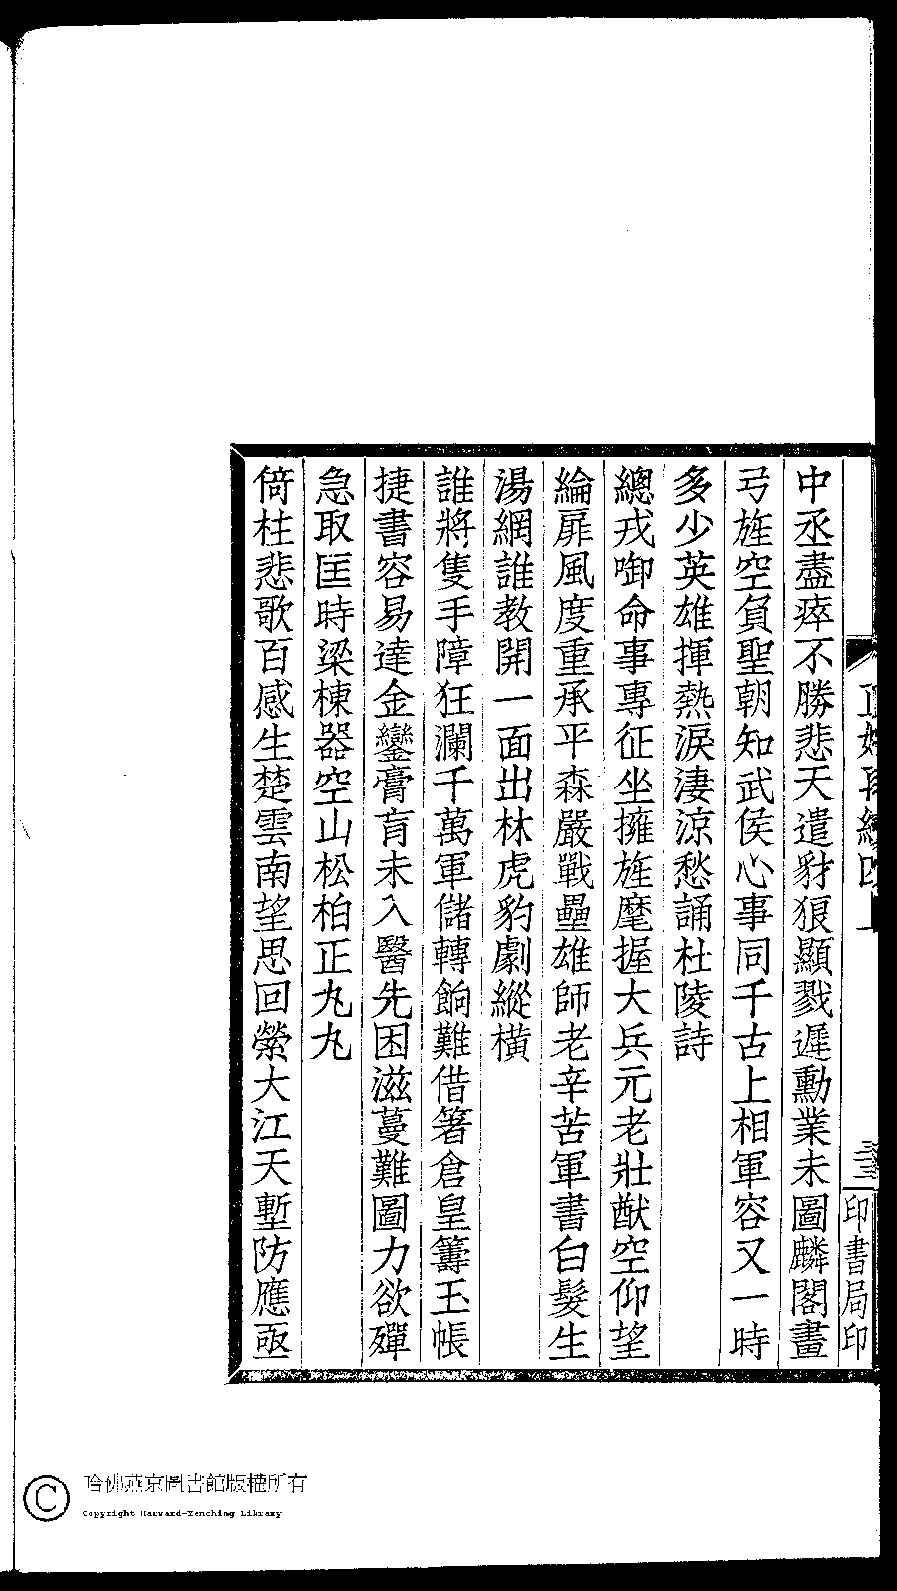 中丞盡瘁不勝悲天遣豺狼顯戮遲勳業未圖麟閣畫
弓旌空負聖朝知武侯心事同千古上相軍容又一時
多少英雄揮熱淚淒涼愁誦杜陵詩
總戎啣命事專征坐擁旌麾握大兵元老壯猷空仰望
綸扉風度重承平森嚴戰壘雄師老辛苦軍書白髮生
湯網誰教開一面出林虎豹劇縱橫
誰將隻手障狂瀾千萬軍儲轉餉難借箸倉皇籌玉帳
捷書容易達金鑾膏肓未入醫先困滋蔓難圖力欲殫
急取匡時梁棟器空山松柏正丸丸
倚柱悲歌百感生楚雲南望思回縈大江天塹防應亟
四上
三三
印書局印
哈佛燕京圖書館版權所有
Copyright Harvard-Yenching Library